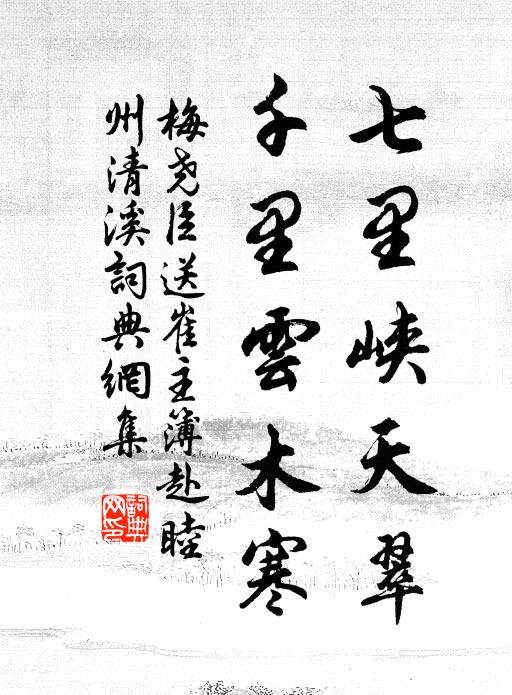 七里峽天翠
千里雲木寒
梅堯臣送崔主簿赴睦
州清溪詞典網集
詞典
网印